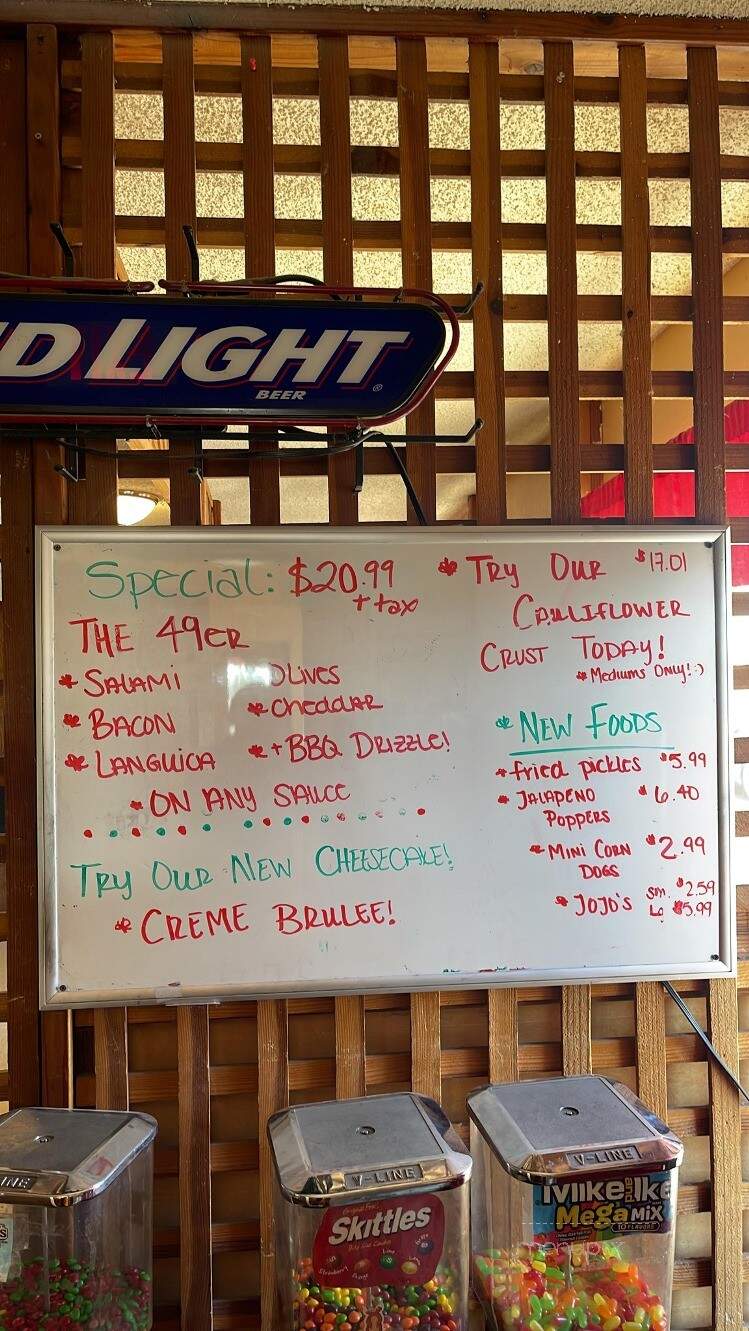 D LIGHT
BEER
Special: $20.99
+ tax
THE 49ER
* SALAMI
* BACON
* LANGUICA
OLIVES
* CHEDDAR
* + BBQ DRIZZLE!
* ON ANY SAUCE
TRY OUR NEW CHEESECAKE!
* CREME BRULEE!
* TRY OUR $17.01
CAULIFLOWER
CRUST TODAY!
* MEDIUMS ONLY! :)
* NEW FOODS
* fried pickles $5.99
* JALAPENO $6.40
POPPERS
* MINI CORN $2.99
DOGS
* JOJO'S sm. $2.59
LG $5.99
INE
V-LINE
V-LINE
Skittles
Mike and Ike
Mega MIX
10 FLAVORS